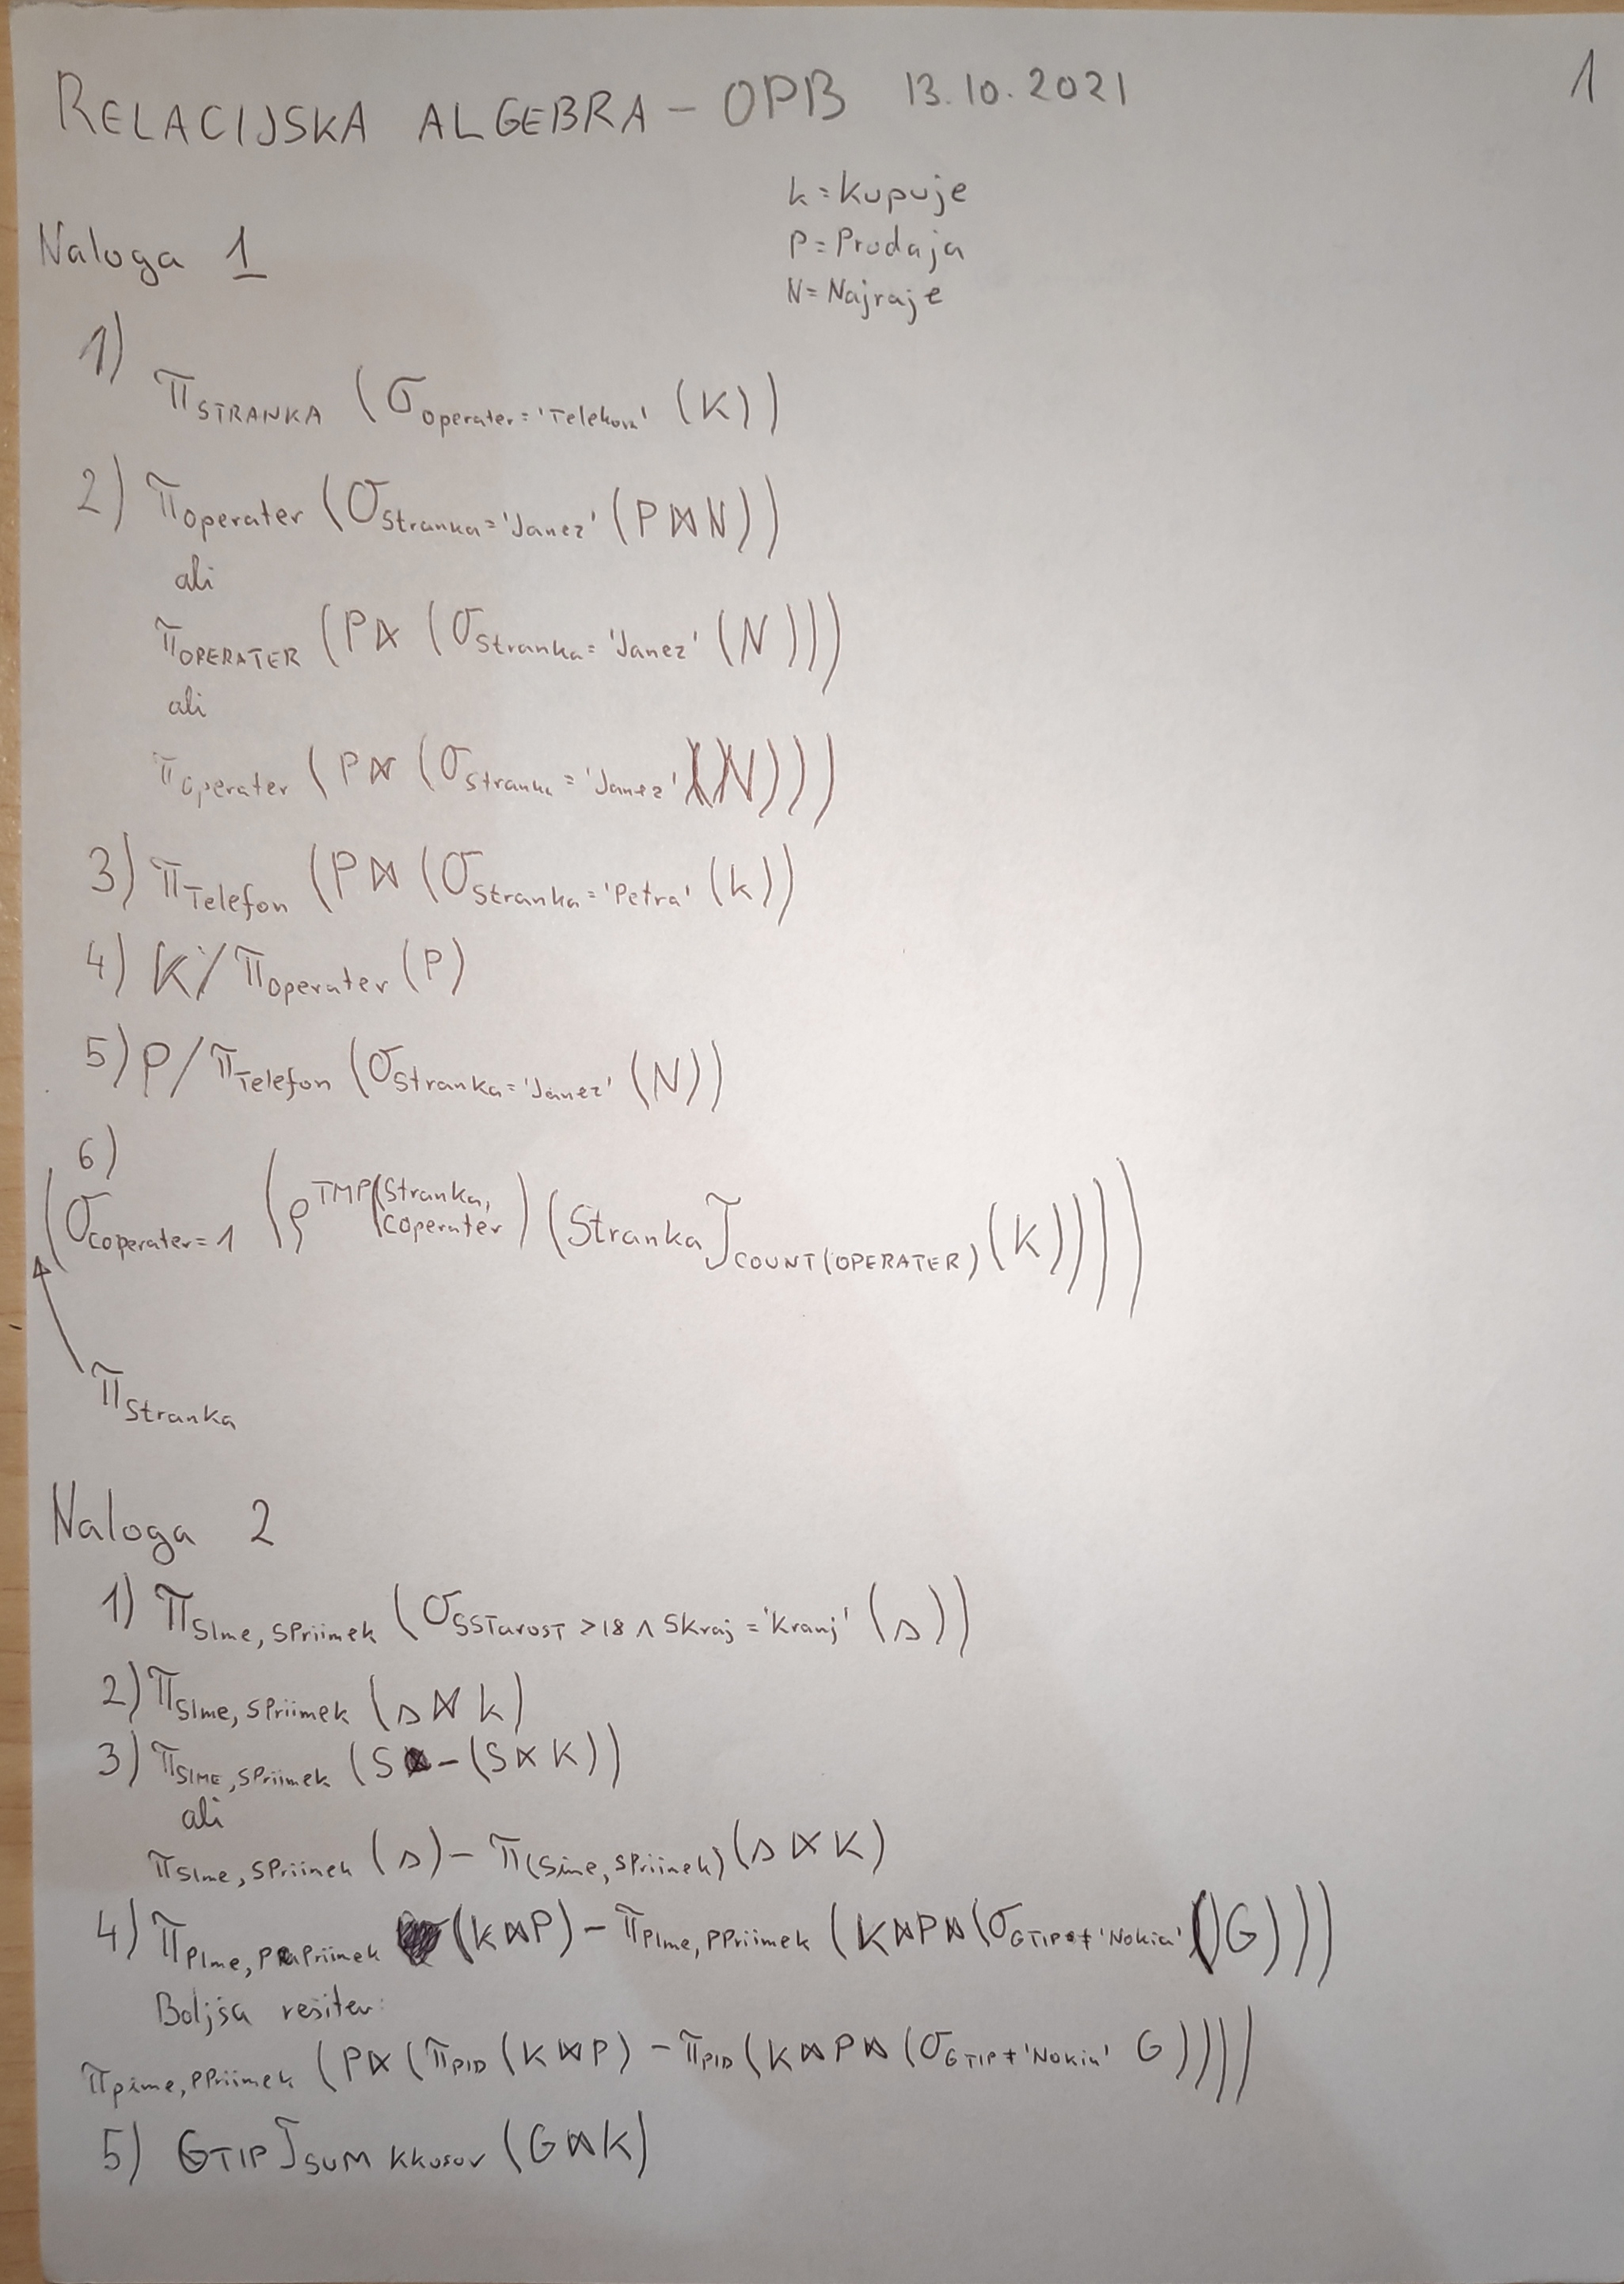 RELACIJSKA ALGEBRA - OPB 13.10.2021 1
k = Kupuje
P = Prodaja
N = Najraje
Naloga 1
1) π STRANKA (σ Operater = 'Telekom' (K))
2) π Operater (σ Stranka = 'Janez' (P ⋈ N))
ali
π OPERATER (P ⋉ (σ Stranka = 'Janez' (N)))
ali
π Operater (P ⋈ (σ Stranka = 'Janez' (N)))
3) π Telefon (P ⋈ (σ Stranka = 'Petra' (k))
4) K / π Operater (P)
5) P / π Telefon (σ Stranka = 'Janez' (N))
6)
(σ COperater = 1 (ρ TMP(Stranka, COperater) (Stranka ℑ COUNT(OPERATER) (K))))
π Stranka
Naloga 2
1) π SIme, SPriimek (σ SStarost > 18 ∧ SKraj = 'Kranj' (s))
2) π SIme, SPriimek (s ⋈ k)
3) π SIME, SPriimek (S - (S ⋉ K))
ali
π SIme, SPriimek (s) - π (Sime, SPriimek) (s ⋉ K)
4) π PIme, PPriimek (K ⋈ P) - π PIme, PPriimek (K ⋈ P ⋈ (σ GTIP ≠ 'Nokia' G)))
Boljša rešitev:
π pime, PPriimek (P ⋉ (π PID (K ⋈ P) - π PID (K ⋈ P ⋈ (σ GTIP ≠ 'Nokia' G))))
5) GTIP ℑ SUM KKosov (G ⋈ K)